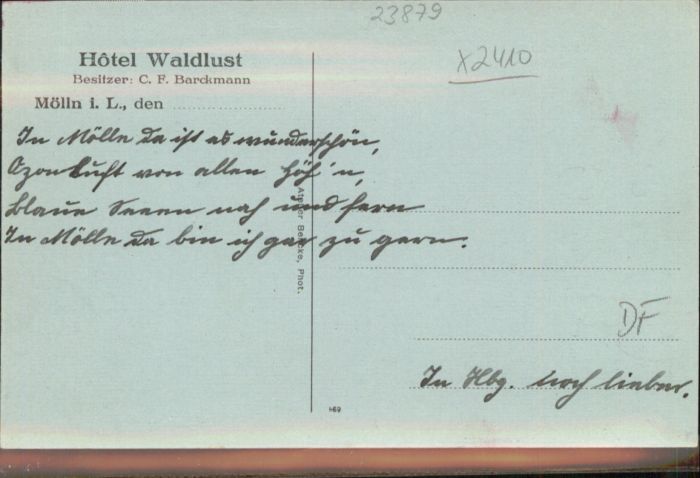 23879
x2410
Hôtel Waldlust
Besitzer: C. F. Barckmann
Mölln i. L., den
In Mölle da ist es wunderschön,
Ozonluft von allen Höh'n,
blaue Seeen nah und fern
In Mölle da bin ich gar zu gern.
Atelier Behncke, Phot.
DF
In Hbg. noch lieber.